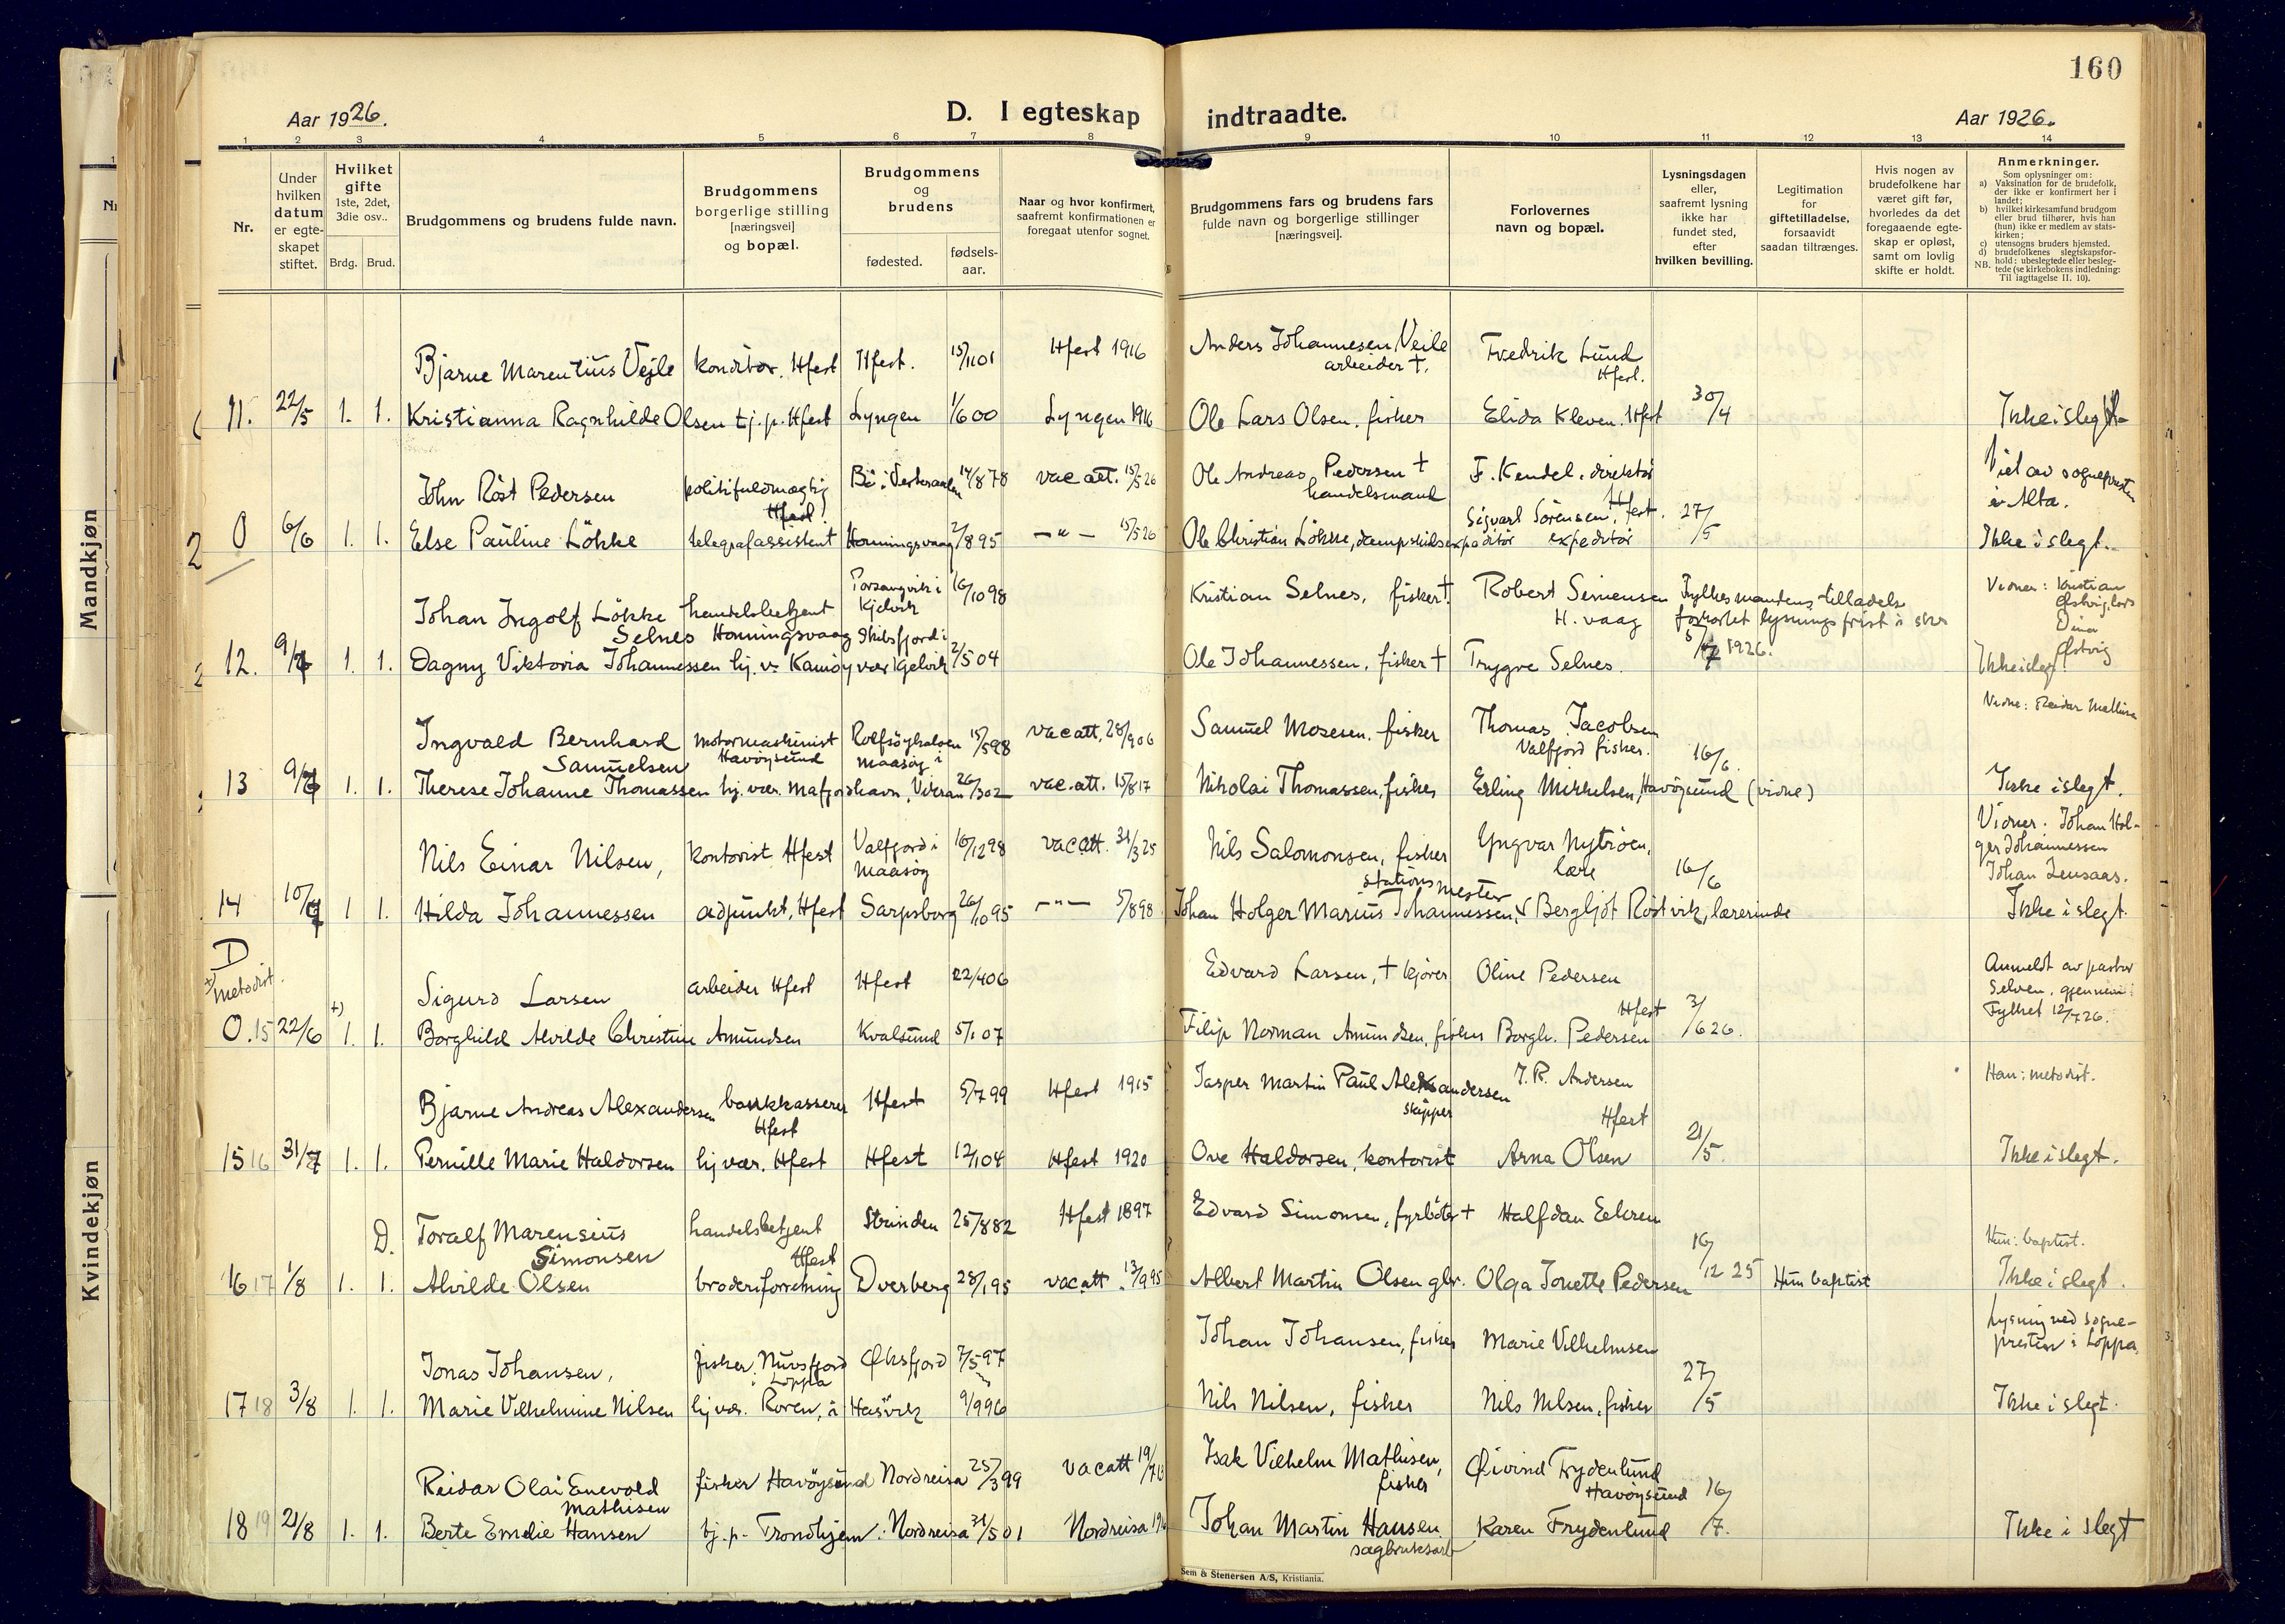 160
Aar 1926.
D. I egteskap indtraadte.
Aar 1926.
1 2 3 4 5 6 7 8 9 10 11 12 13 14
Nr.
Under hvilken datum er egteskapet stiftet.
Hvilket gifte 1ste, 2det, 3die osv..
Brdg. Brud.
Brudgommens og brudens fulde navn.
Brudgommens borgerlige stilling [næringsvei] og bopæl.
Brudgommens og brudens
fødested.
fødsels-aar.
Naar og hvor konfirmert, saafremt konfirmationen er foregaat utenfor sognet.
Brudgommens fars og brudens fars fulde navn og borgerlige stillinger [næringsvei].
Forlovernes navn og bopæl.
Lysningsdagen eller, saafremt lysning ikke har fundet sted, efter hvilken bevilling.
Legitimation for giftetilladelse, forsaavidt saadan tiltrænges.
Hvis nogen av brudefolkene har været gift før, hvorledes da det foregaaende egteskap er opløst, samt om lovlig skifte er holdt.
Anmerkninger.
Som oplysninger om:
a) Vaksination for de brudefolk, der ikke er konfirmert her i landet;
b) hvilket kirkesamfund brudgom eller brud tilhører, hvis han (hun) ikke er medlem av statskirken;
c) utensogns bruders hjemsted.
d) brudefolkenes slegtskapsforhold: ubeslegtede eller beslegtede (se kirkebokens indledning:
NB. Til iagttagelse II. 10).
Mandkjøn
Kvindekjøn
Bjarne Marentius Vejle konditor. Hfest Hfest. 15/1101 Hfest 1916 Anders Johannesen Veile arbeider †. Fredrik Lund Hfest.
11. 22/5 1. 1. Kristianna Ragnhilde Olsen tj.p. Hfest Lyngen 1/600 Lyngen 1916 Ole Lars Olsen, fisker Elida Kleven. Hfest 30/4 Ikke i slegt
John Röst Pedersen politifuldmægtig Hfest Bö i Vesteraalen 14/878 vac att. 15/5 26 Ole Andreas Pedersen † handelsmand F. Kendel, direktør Hfest. Viet av sognepresten i Alta.
0 6/6 1. 1. Else Pauline Lökke telegrafassistent Honningsvaag 2/895 —"— 15/5 26 Ole Christian Lökke, dampskibsexpeditör Sigvart Sörensen expeditör 27/5 Ikke i slegt.
Johan Ingolf Lökke Selnes handelsbetjent Honningsvaag Porsangvik i Kjelvik 16/1098 Kristian Selnes, fisker †. Robert Simensen H.vaag Fylkesmandens tilladelse forkortet lysningsfrist Vidner: Kristian
12. 9/7 1. 1. Dagny Viktoria Johannessen hj. v. Kamöyvær Skibsfjord i Kjelvik 2/504 Ole Johannessen, fisker † Trygve Selnes. 5/7 1926. Ikke i slegt
Ingvald Bernhard Samuelsen motormaskinist Havöysund Rolfsöyhalvöen i Maasöy 15/598 vac att. 28/906 Samuel Mosesen, fisker Thomas Jacobsen Valfjord fisker. Vidne: Reidar
13 9/7 1. 1. Therese Johanne Thomassen hj. vær. Mafjordhavn, 26/302 vac. att. 15/817 Nikolai Thomassen, fisker Erling Mikkelsen, Havöysund (vidne) 16/6. Ikke i slegt.
Nils Einar Nilsen, kontorist Hfest Valfjord i Maasöy 16/1298 vac att. 31/325 Nils Salomonsen, fisker Yngvar Nytröen, Vidner: Johan Holger Johannessen Johan Lensaas.
14 10/7 1 1. Hilda Johannessen adjunkt, Hfest Sarpsborg 26/1095 —"— 5/898 Johan Holger Marius Johannessen, stationsmester Bergljot Röstvik, lærerinde 16/6 Ikke i slegt.
D +) metodist.
Sigurd Larsen arbeider Hfest Hfest 22/406 Edvard Larsen, † kjörer Oline Pedersen Hfest Anmeldt av pastor Selven, gjennem Fylket 12/726.
0. 15 22/6 +) 1. 1. Borghild Alvilde Christine Amundsen Kvalsund 5/107 Filip Norman Amundsen, fisker Borgh. Pedersen 3/626.
Bjarne Andreas Alexandersen bankkasserer Hfest Hfest 5/799 Hfest 1915 Jasper Martin Paul Alexandersen skipper J. R. Andersen Hfest Han: metodist.
15 16 31/7 1. 1. Pernille Marie Haldorsen hj vær. Hfest Hfest 12/104 Hfest 1920 Ove Haldorsen, kontorist Arna Olsen 21/5. Ikke i slegt.
D. Toralf Marensius Simonsen handelsbetjent Hfest Strinden 25/882 Hfest 1897 Edvard Simonsen, fyrböter † Halfdan Eekren Hun: baptist.
16 17 1/8 1. 1. Alvilde Olsen broderiforretning Dverberg 28/195 vac att. 13/995 Albert Martin Olsen gbr. Olga Jonette Pedersen 16/12 25 Hun baptist Ikke i slegt.
Jonas Johansen, fisker, Nuvsfjord i Loppa Øksfjord 7/597 Johan Johansen, fisker Marie Vilhelmsen Lysning ved sognepresten i Loppa.
17 18 3/8 1. 1. Marie Vilhelmine Nilsen hj vær. Hasvik 9/996 Nils Nilsen, fisker Nils Nilsen, fisker 27/5 Ikke i slegt.
Reidar Olai Enevold Mathisen fisker Havöysund Nordreisa 25/399 vac att 19/7 Isak Vilhelm Mathisen, fisker Øivind Frydenlund Havöysund
18 19 21/8 1. 1. Berte Emelie Hansen tj.p. Trondhjem. Nordreisa 31/501 Nordreisa Johan Martin Hansen sagbruksarb Karen Frydenlund 16/7. Ikke i slegt
Sem & Stenersen A/S, Kristiania.